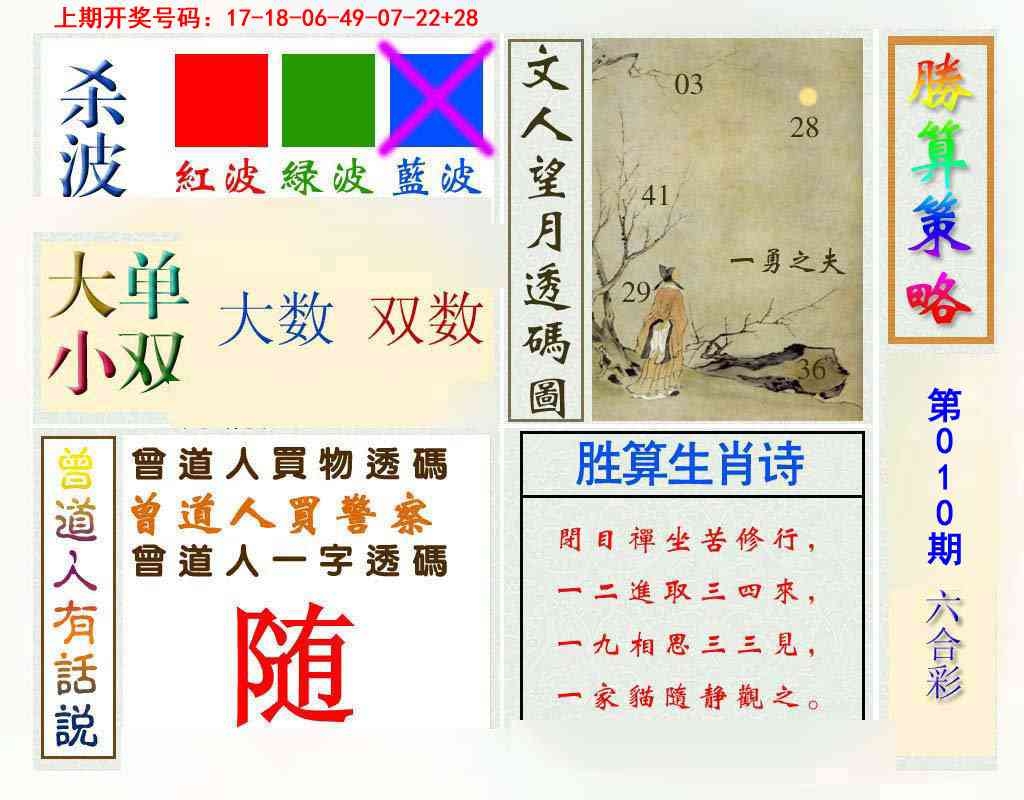 上期开奖号码：17-18-06-49-07-22+28
杀波
紅波
緑波
藍波
大小
单双
大数
双数
文人望月透碼圖
03
28
41
一勇之夫
29
36
勝算策略
第010期
六合彩
曾道人有話説
曾道人買物透碼
曾道人買警察
曾道人一字透碼
随
胜算生肖诗
閉目禪坐苦修行，
一二進取三四來，
一九相思三三見，
一家貓隨静觀之。